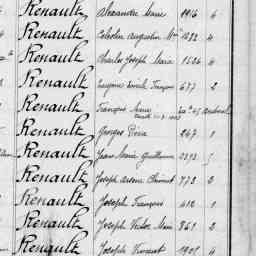 Renault Alexandre Marie 1916 4
Renault Celestin Augustin Mie 1432 4
Renault Charles Joseph Marie 1524 4
Renault Eugène Emile François 677 2
Renault François Marie
Renault Georges Pierre 247 1
Renault Jean Marie Guillaume 2293 5
Renault Joseph Aristide Clément 773 2
Renault Joseph François 412 1
Renault Joseph Victor Marie 841 2
Renault Joseph Vincent 1901 4